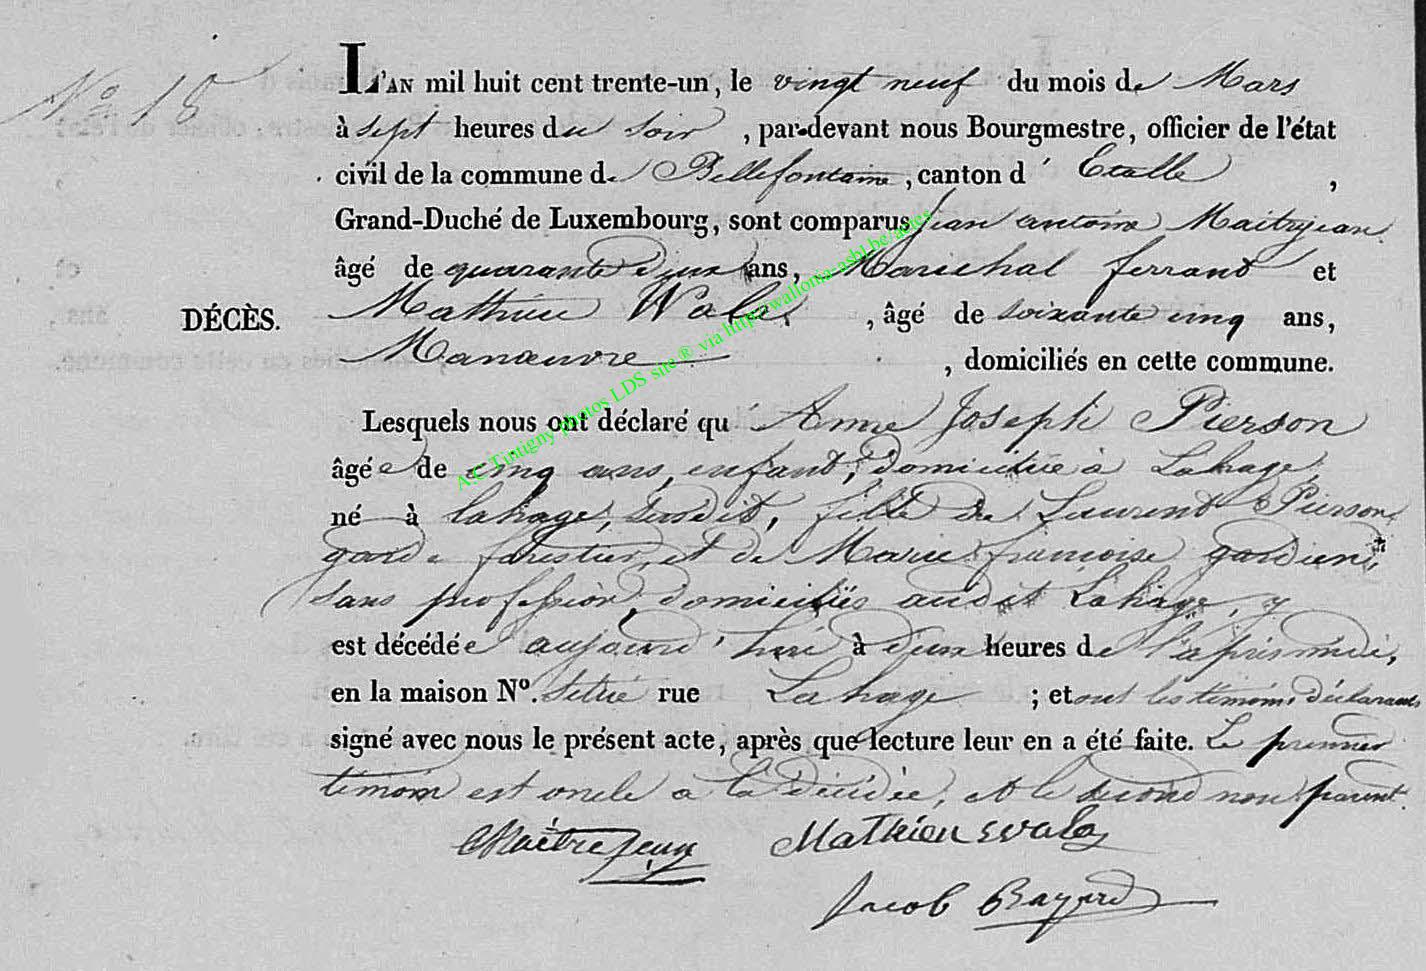 No 18
L'AN mil huit cent trente-un, le vingt neuf du mois de Mars
à sept heures du soir, par-devant nous Bourgmestre, officier de l'état
civil de la commune de Bellefontaine, canton d'Etalle,
Grand-Duché de Luxembourg, sont comparus Jean antoine Maitrejean
âgé de quarante deux ans, Marechal ferrant et
DÉCÈS.
Mathieu Wala, âgé de soixante cinq ans,
Manœuvre, domiciliés en cette commune.
Lesquels nous ont déclaré qu'Anne Joseph Pierson
âgée de cinq ans, enfant, domiciliée à Lahage,
né à lahage, susdit, fille de Laurent Pierson,
garde forestier, et de Marie françoise gardien,
sans profession, domiciliés audit Lahage, y
est décédée aujourd'hui à deux heures de l'après midi,
en la maison No. située rue Lahage; et ont les témoins déclarants
signé avec nous le présent acte, après que lecture leur en a été faite. Le premier
témoin est oncle a la décédée, et le second non parent.
Maitrejean Mathieu Wala
Jacob Bayard
A.C Tintigny photos LDS site ® via http://wallonia-asbl.be/actes